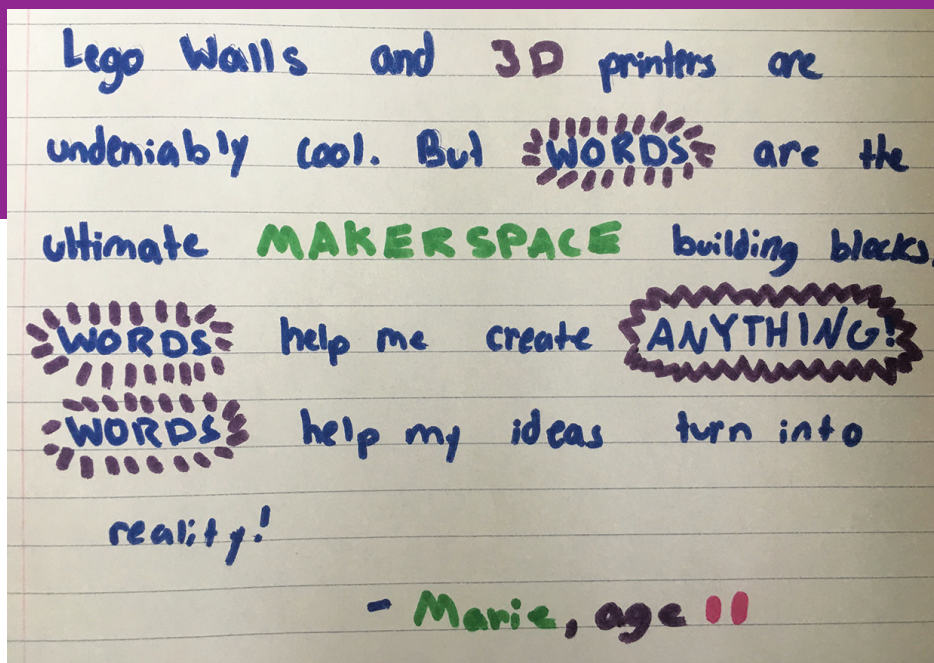 Lego Walls and 3D printers are
undeniably cool. But WORDS are the
ultimate MAKERSPACE building blocks.
WORDS help me create ANYTHING!
WORDS help my ideas turn into
reality!
- Marie, age 11